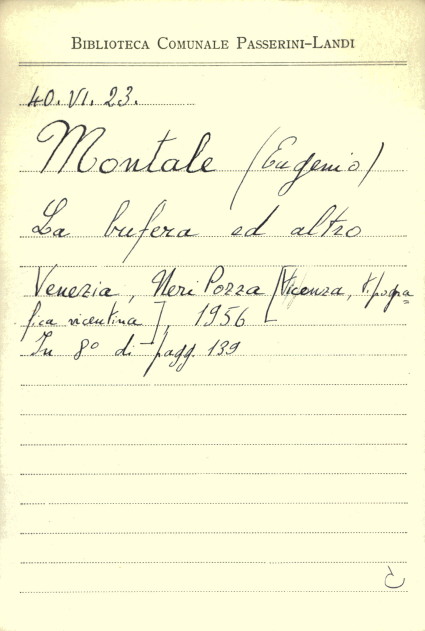 BIBLIOTECA COMUNALE PASSERINI-LANDI
40. VI. 23.
Montale (Eugenio)
La bufera ed altro
Venezia, Neri Pozza [Vicenza, tipogra=
fica vicentina], 1956
In 8º di pagg. 139